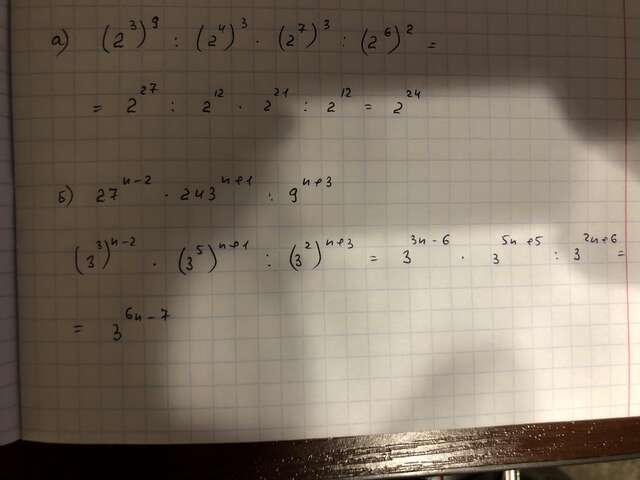 а) (2^3)^9 : (2^4)^3 · (2^7)^3 : (2^6)^2 =
= 2^27 : 2^12 · 2^21 : 2^12 = 2^24
б) 27^n-2 · 243^n+1 : 9^n+3
(3^3)^n-2 · (3^5)^n+1 : (3^2)^n+3 = 3^3n-6 · 3^5n+5 : 3^2n+6 =
= 3^6n-7